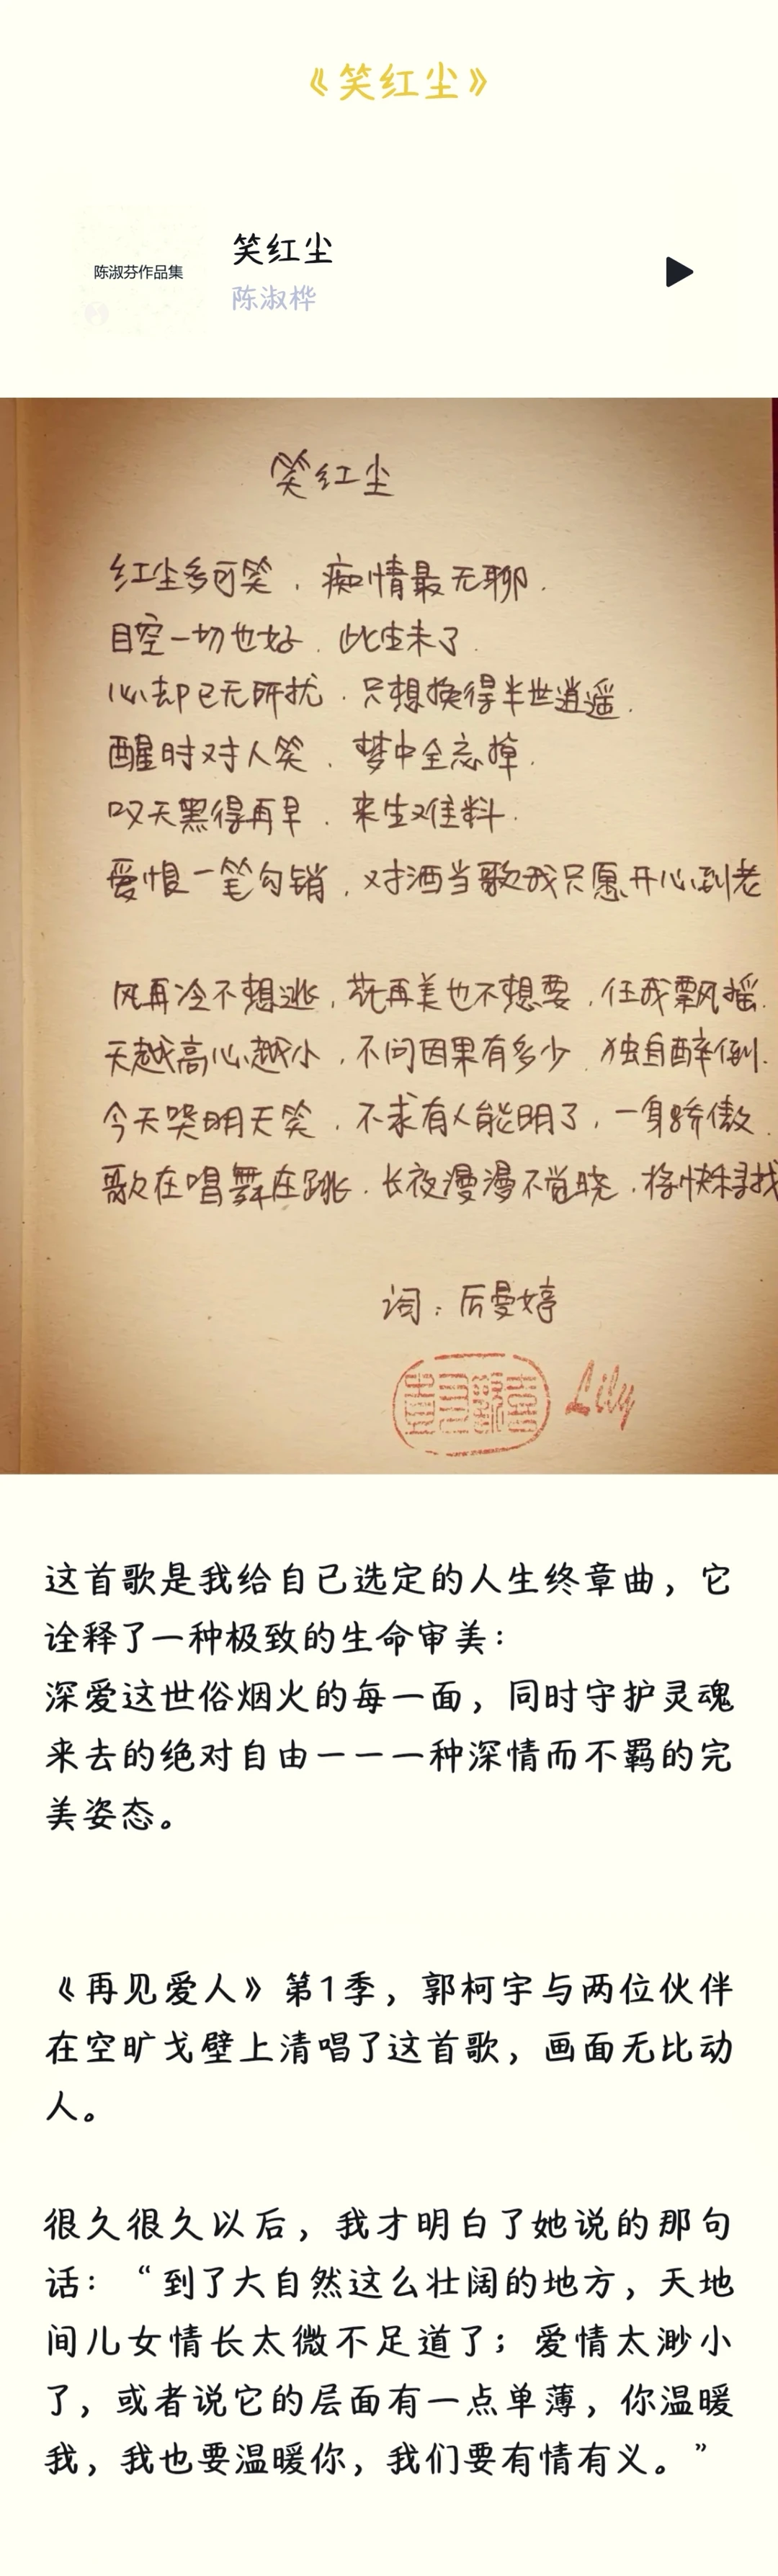 《笑红尘》
陈淑芬作品集
笑红尘
陈淑桦
笑红尘
红尘多可笑，痴情最无聊．
目空一切也好．此生未了．
心却已无所扰．只想换得半世逍遥．
醒时对人笑．梦中全忘掉．
叹天黑得再早．来生难料．
爱恨一笔勾销，对酒当歌我只愿开心到老
风再冷不想逃，花再美也不想要，任我飘摇．
天越高心越小，不问因果有多少．独自醉倒．
今天哭明天笑，不求有人能明了，一身骄傲．
歌在唱舞在跳．长夜漫漫不觉晓．将快乐寻找
词：厉曼婷
Lily
这首歌是我给自己选定的人生终章曲，它
诠释了一种极致的生命审美：
深爱这世俗烟火的每一面，同时守护灵魂
来去的绝对自由一一一种深情而不羁的完
美姿态。
《再见爱人》第1季，郭柯宇与两位伙伴
在空旷戈壁上清唱了这首歌，画面无比动
人。
很久很久以后，我才明白了她说的那句
话：“到了大自然这么壮阔的地方，天地
间儿女情长太微不足道了；爱情太渺小
了，或者说它的层面有一点单薄，你温暖
我，我也要温暖你，我们要有情有义。”